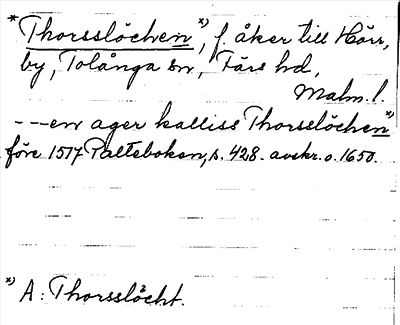 *Thorsslöchen*), f. åker till Hörr,
by, Tolånga sn, Färs hd,
Malm. l.
---en ager kalliss Thorsslöchen*)
före 1517 Palteboken, s. 428. avskr. o. 1650.
*) A: Thorsslöcht.